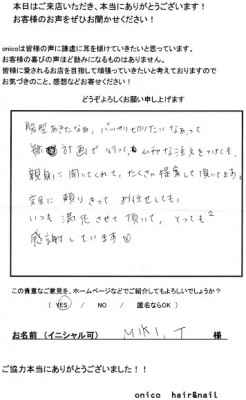 本日はご来店いただき、本当にありがとうございます!
お客様のお声をぜひお聞かせください!
onicoは皆様の声に謙虚に耳を傾けていきたいと思っています。
お客様の喜びの声ほど励みになるものはありません。
皆様に愛されるお店を目指して頑張っていきたいと考えておりますので
お気づきのこと、感想などお寄せください!
どうぞよろしくお願い申し上げます
髪型あきたなぁ、バッサリ切りたいなぁって
計画で いつも ムチャな注文をつけても、
親身に聞いてくれて、たくさん提案して頂いてます。
完全に頼りきって お任せしても、
いつも満足させて頂いて、とっても2
感謝しています
この貴重なご意見を、ホームページなどでご紹介してもよろしいでしょうか?
( YES / NO / 匿名ならOK )
お名前(イニシャル可) MIKI.T 様
ご協力本当にありがとうございました!!
onico hair&nail